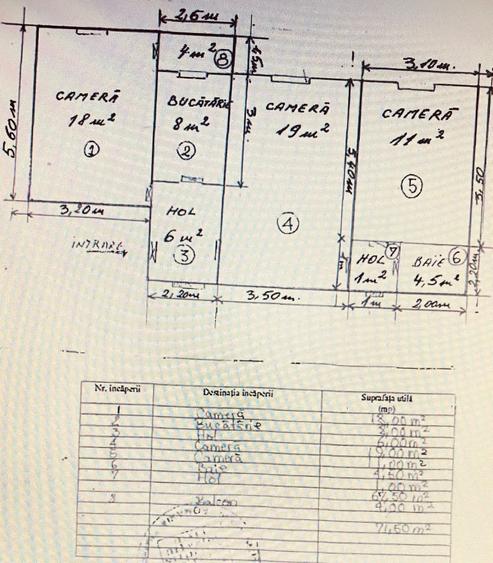 2,6m
4 m² 8
1,5m
3,10m
CAMERĂ
18 m²
1
BUCĂTĂRIE
8 m²
2
3 m.
CAMERĂ
19 m²
4
CAMERĂ
11 m²
5
5,60m
5,40m
3,50
3,20m
INTRARE
HOL
6 m²
3
HOL 7
1 m²
BAIE 6
4,5 m²
2,20m
1m
2,20m
3,50m.
1m
2,00m
Nr. încăperii Destinația încăperii Suprafața utilă (mp)
1 Cameră 18,00 m²
2 Bucătărie 8,00 m²
3 Hol 6,00 m²
4 Cameră 19,00 m²
5 Cameră 11,00 m²
6 Baie 4,50 m²
7 Hol 1,00 m²
67,50 m²
8 Balcon 4,00 m²
71,50 m²